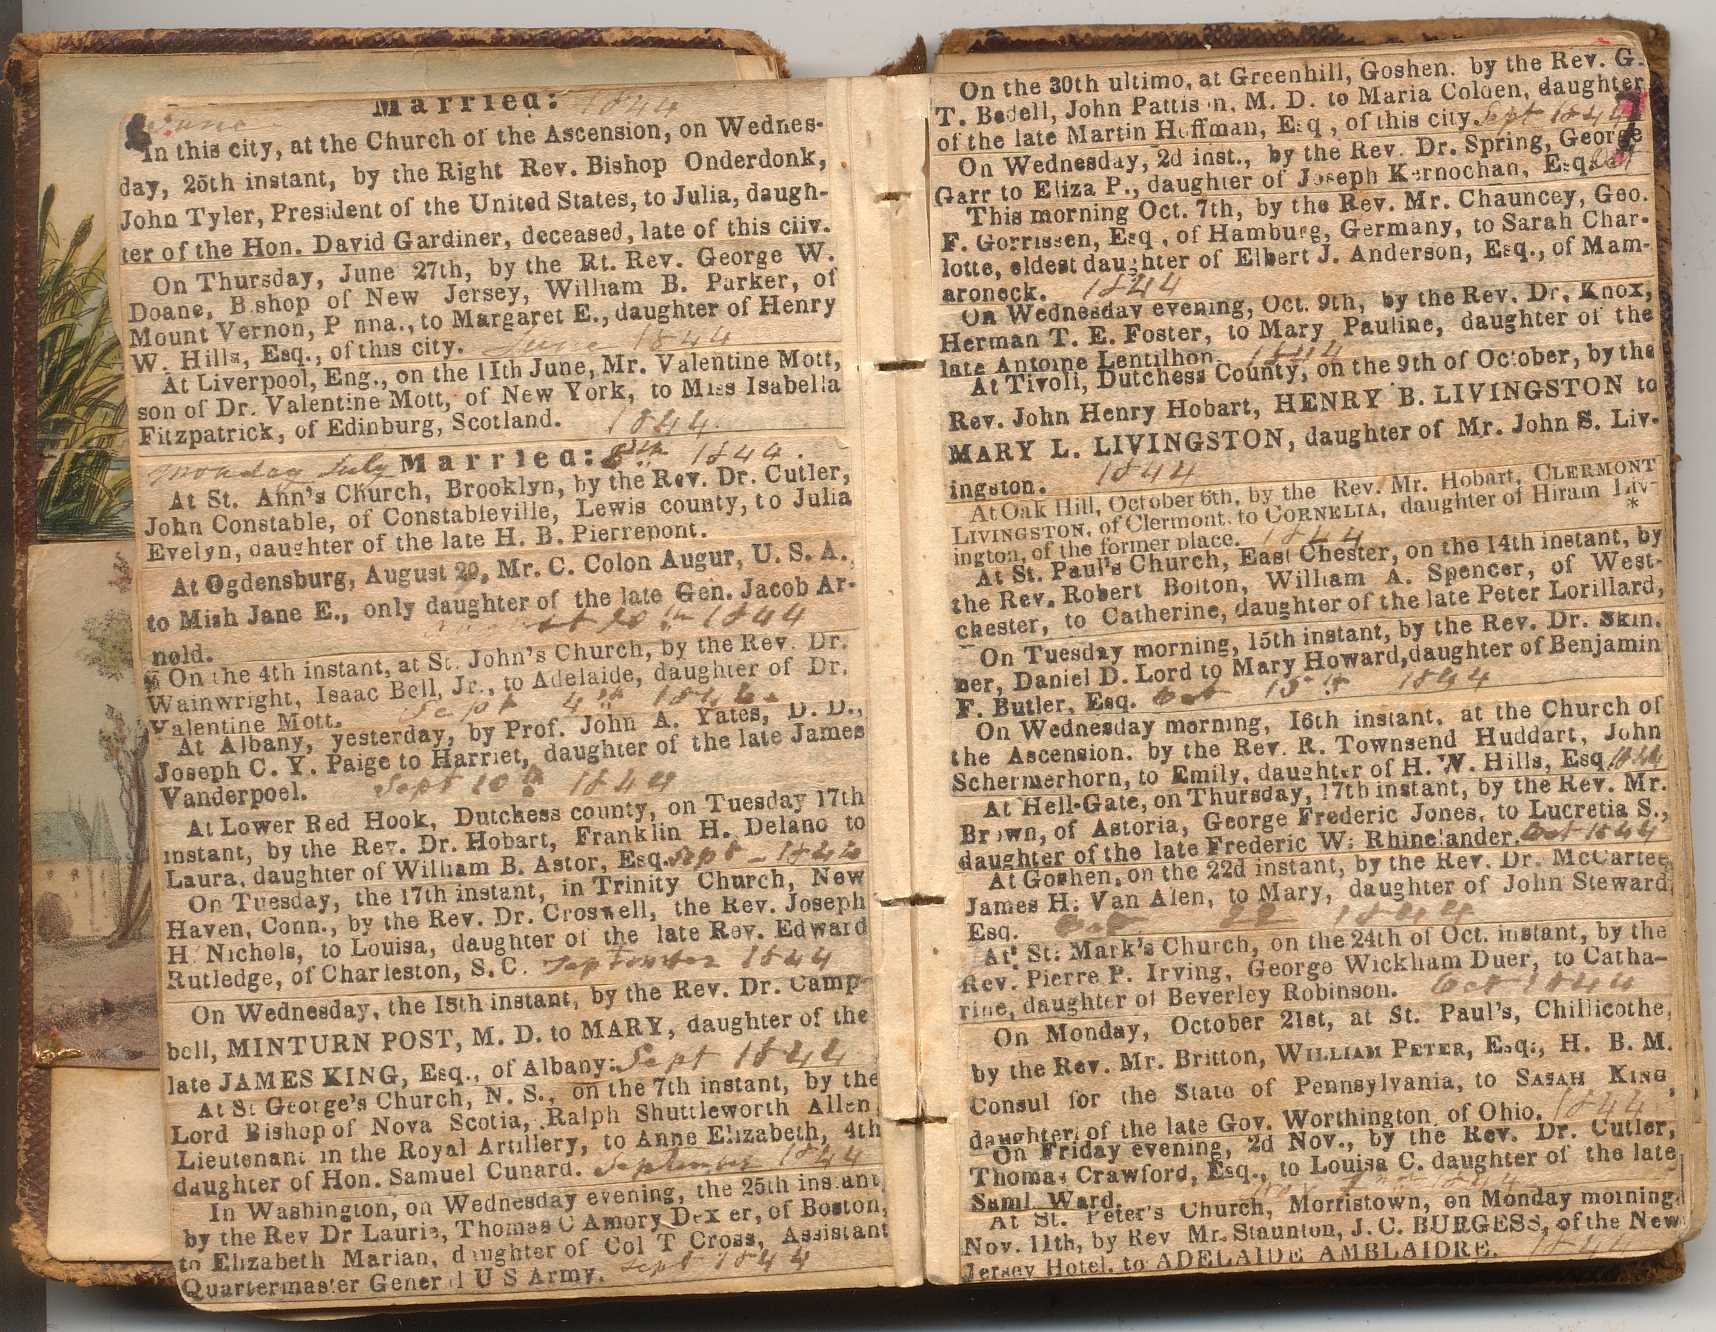 Married:
June 1844
In this city, at the Church of the Ascension, on Wednes-
day, 25th instant, by the Right Rev. Bishop Onderdonk,
John Tyler, President of the United States, to Julia, daugh-
ter of the Hon. David Gardiner, deceased, late of this city.
On Thursday, June 27th, by the Rt. Rev. George W.
Doane, Bishop of New Jersey, William B. Parker, of
Mount Vernon, P nna., to Margaret E., daughter of Henry
W. Hills, Esq., of this city. June 1844
At Liverpool, Eng., on the 11th June, Mr. Valentine Mott,
son of Dr. Valentine Mott, of New York, to Miss Isabella
Fitzpatrick, of Edinburg, Scotland. 1844
Monday July Married: 8th 1844.
At St. Ann's Church, Brooklyn, by the Rev. Dr. Cutler,
John Constable, of Constableville, Lewis county, to Julia
Evelyn, daughter of the late H. B. Pierrepont.
At Ogdensburg, August 20, Mr. C. Colon Augur, U. S. A.,
to Mish Jane E., only daughter of the late Gen. Jacob Ar-
nold. 1844
On the 4th instant, at St. John's Church, by the Rev. Dr.
Wainwright, Isaac Bell, Jr., to Adelaide, daughter of Dr.
Valentine Mott. Sept 4th 1844
At Albany, yesterday, by Prof. John A. Yates, D. D.,
Joseph C. Y. Paige to Harriet, daughter of the late James
Vanderpoel. Sept 10th 1844
At Lower Red Hook, Dutchess county, on Tuesday 17th
instant, by the Rev. Dr. Hobart, Franklin H. Delano to
Laura, daughter of William B. Astor, Esq. Sept - 1844
On Tuesday, the 17th instant, in Trinity Church, New
Haven, Conn., by the Rev. Dr. Croswell, the Rev. Joseph
H. Nichols, to Louisa, daughter of the late Rev. Edward
Rutledge, of Charleston, S. C. September 1844
On Wednesday, the 18th instant, by the Rev. Dr. Camp-
bell, MINTURN POST, M. D. to MARY, daughter of the
late JAMES KING, Esq., of Albany. Sept 1844
At St George's Church, N. S., on the 7th instant, by the
Lord Bishop of Nova Scotia, Ralph Shuttleworth Allen,
Lieutenant in the Royal Artillery, to Anne Elizabeth, 4th
daughter of Hon. Samuel Cunard. September 1844
In Washington, on Wednesday evening, the 25th instant,
by the Rev Dr Laurie, Thomas C Amory Dexter, of Boston,
to Elizabeth Marian, daughter of Col T Cross, Assistant
Quartermaster General U S Army. Sept 1844
On the 30th ultimo, at Greenhill, Goshen, by the Rev. G.
T. Bedell, John Pattison, M. D. to Maria Colden, daughter
of the late Martin Hoffman, Esq., of this city. Sept 1844
On Wednesday, 2d inst., by the Rev. Dr. Spring, George
Garr to Eliza P., daughter of Joseph Kernochan, Esq. Oct
This morning Oct. 7th, by the Rev. Mr. Chauncey, Geo.
F. Gorrissen, Esq., of Hamburg, Germany, to Sarah Char-
lotte, eldest daughter of Elbert J. Anderson, Esq., of Mam-
aroneck. 1844
On Wednesday evening, Oct. 9th, by the Rev. Dr. Knox,
Herman T. E. Foster, to Mary Pauline, daughter of the
late Antoine Lentilhon. 1844
At Tivoli, Dutchess County, on the 9th of October, by the
Rev. John Henry Hobart, HENRY B. LIVINGSTON to
MARY L. LIVINGSTON, daughter of Mr. John S. Liv-
ingston. 1844
At Oak Hill, October 6th, by the Rev. Mr. Hobart, CLERMONT
LIVINGSTON, of Clermont, to CORNELIA, daughter of Hiram Liv-
ington, of the former place. 1844 *
At St. Paul's Church, East Chester, on the 14th instant, by
the Rev. Robert Bolton, William A. Spencer, of West-
chester, to Catherine, daughter of the late Peter Lorillard,
On Tuesday morning, 15th instant, by the Rev. Dr. Skin.
ner, Daniel D. Lord to Mary Howard, daughter of Benjamin
F. Butler, Esq. Oct 15th 1844
On Wednesday morning, 16th instant, at the Church of
the Ascension, by the Rev. R. Townsend Huddart, John
Schermerhorn, to Emily, daughter of H. W. Hills, Esq. 1844
At Hell-Gate, on Thursday, 17th instant, by the Rev. Mr.
Brown, of Astoria, George Frederic Jones, to Lucretia S.,
daughter of the late Frederic W. Rhinelander. Oct 1844
At Goshen, on the 22d instant, by the Rev. Dr. McCartee,
James H. Van Alen, to Mary, daughter of John Steward,
Esq. Oct 22 1844
At St. Mark's Church, on the 24th of Oct. instant, by the
Rev. Pierre P. Irving, George Wickham Duer, to Catha-
rine, daughter of Beverley Robinson. Oct 1844
On Monday, October 21st, at St. Paul's, Chillicothe,
by the Rev. Mr. Britton, WILLIAM PETER, Esq., H. B. M.
Consul for the State of Pennsylvania, to SARAH KING,
daughter of the late Gov. Worthington of Ohio. 1844
On Friday evening, 2d Nov., by the Rev. Dr. Cutler,
Thomas Crawford, Esq., to Louisa C. daughter of the late
Saml. Ward. 1844
At St. Peter's Church, Morristown, on Monday morning,
Nov. 11th, by Rev Mr. Staunton, J. C. BURGESS, of the New
Jersey Hotel, to ADELAIDE AMBLAIDRE. 1844